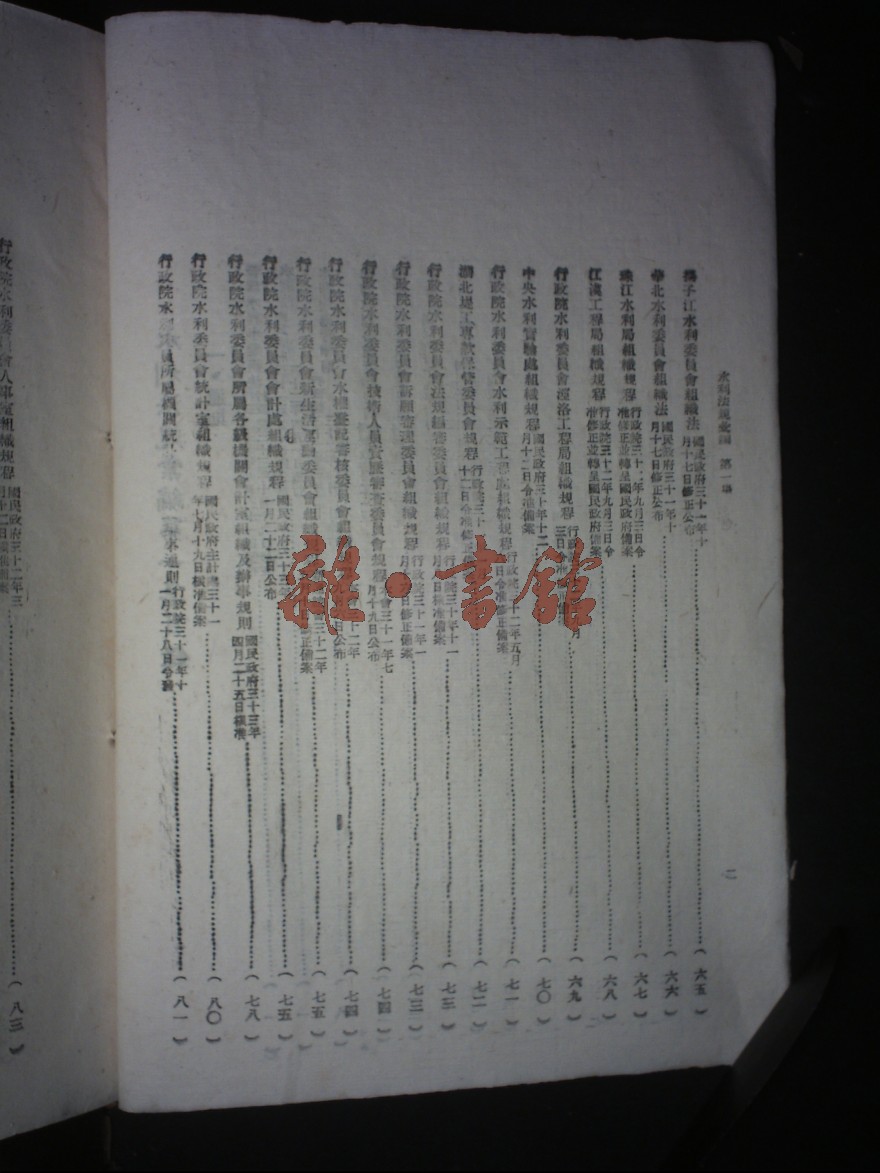 水利法規彙編　第一集
二
揚子江水利委員會組織法 國民政府三十一年十月十七日修正公布 （六五）
華北水利委員會組織法 國民政府三十一年十月十七日修正公布 （六六）
珠江水利局組織規程 行政院三十二年九月三日令准修正並轉呈國民政府備案 （六七）
江漢工程局組織規程 行政院三十二年九月三日令准修正並轉呈國民政府備案 （六八）
行政院水利委員會涇洛工程局組織規程 行政院 月三日令准修 （六九）
中央水利實驗處組織規程 國民政府三十年十二月十二日令准備案 （七〇）
行政院水利委員會水利示範工程處組織規程 行政院三十二年五月 日令准修正備案 （七一）
湖北堤工專款保管委員會規程 行政院三十 十二日令准修正 （七二）
行政院水利委員會法規編審委員會組織規程 行政院三十年十一月 日修正備案 （七三）
行政院水利委員會訴願審理委員會組織規程 行政院三十二年一月 日修正備案 （七三）
行政院水利委員會技術人員資歷審查委員會規程 會三十一年七月十九日公布 （七四）
行政院水利委員會水權登記審核委員會組 會三十二年 日公布 （七四）
行政院水利委員會新生活運動委員會組織規 會三十二年 修正備案 （七五）
行政院水利委員會會計處組織規程 國民政府三十 一月二十一日公布 （七五）
行政院水利委員會所屬各級機關會計室組織及辦事規則 國民政府三十三年四月二十五日核准 （七八）
行政院水利委員會統計室組織規程 國民政府主計處三十一年七月十九日核准備案 （八〇）
行政院水利委員 所屬機關統 事通則 行政院三十一年十一月二十八日令 （八一）
行政院水利委員會人事室組織規程 國民政府三十二年三月十二日核准備案 （八三）
雜·書館